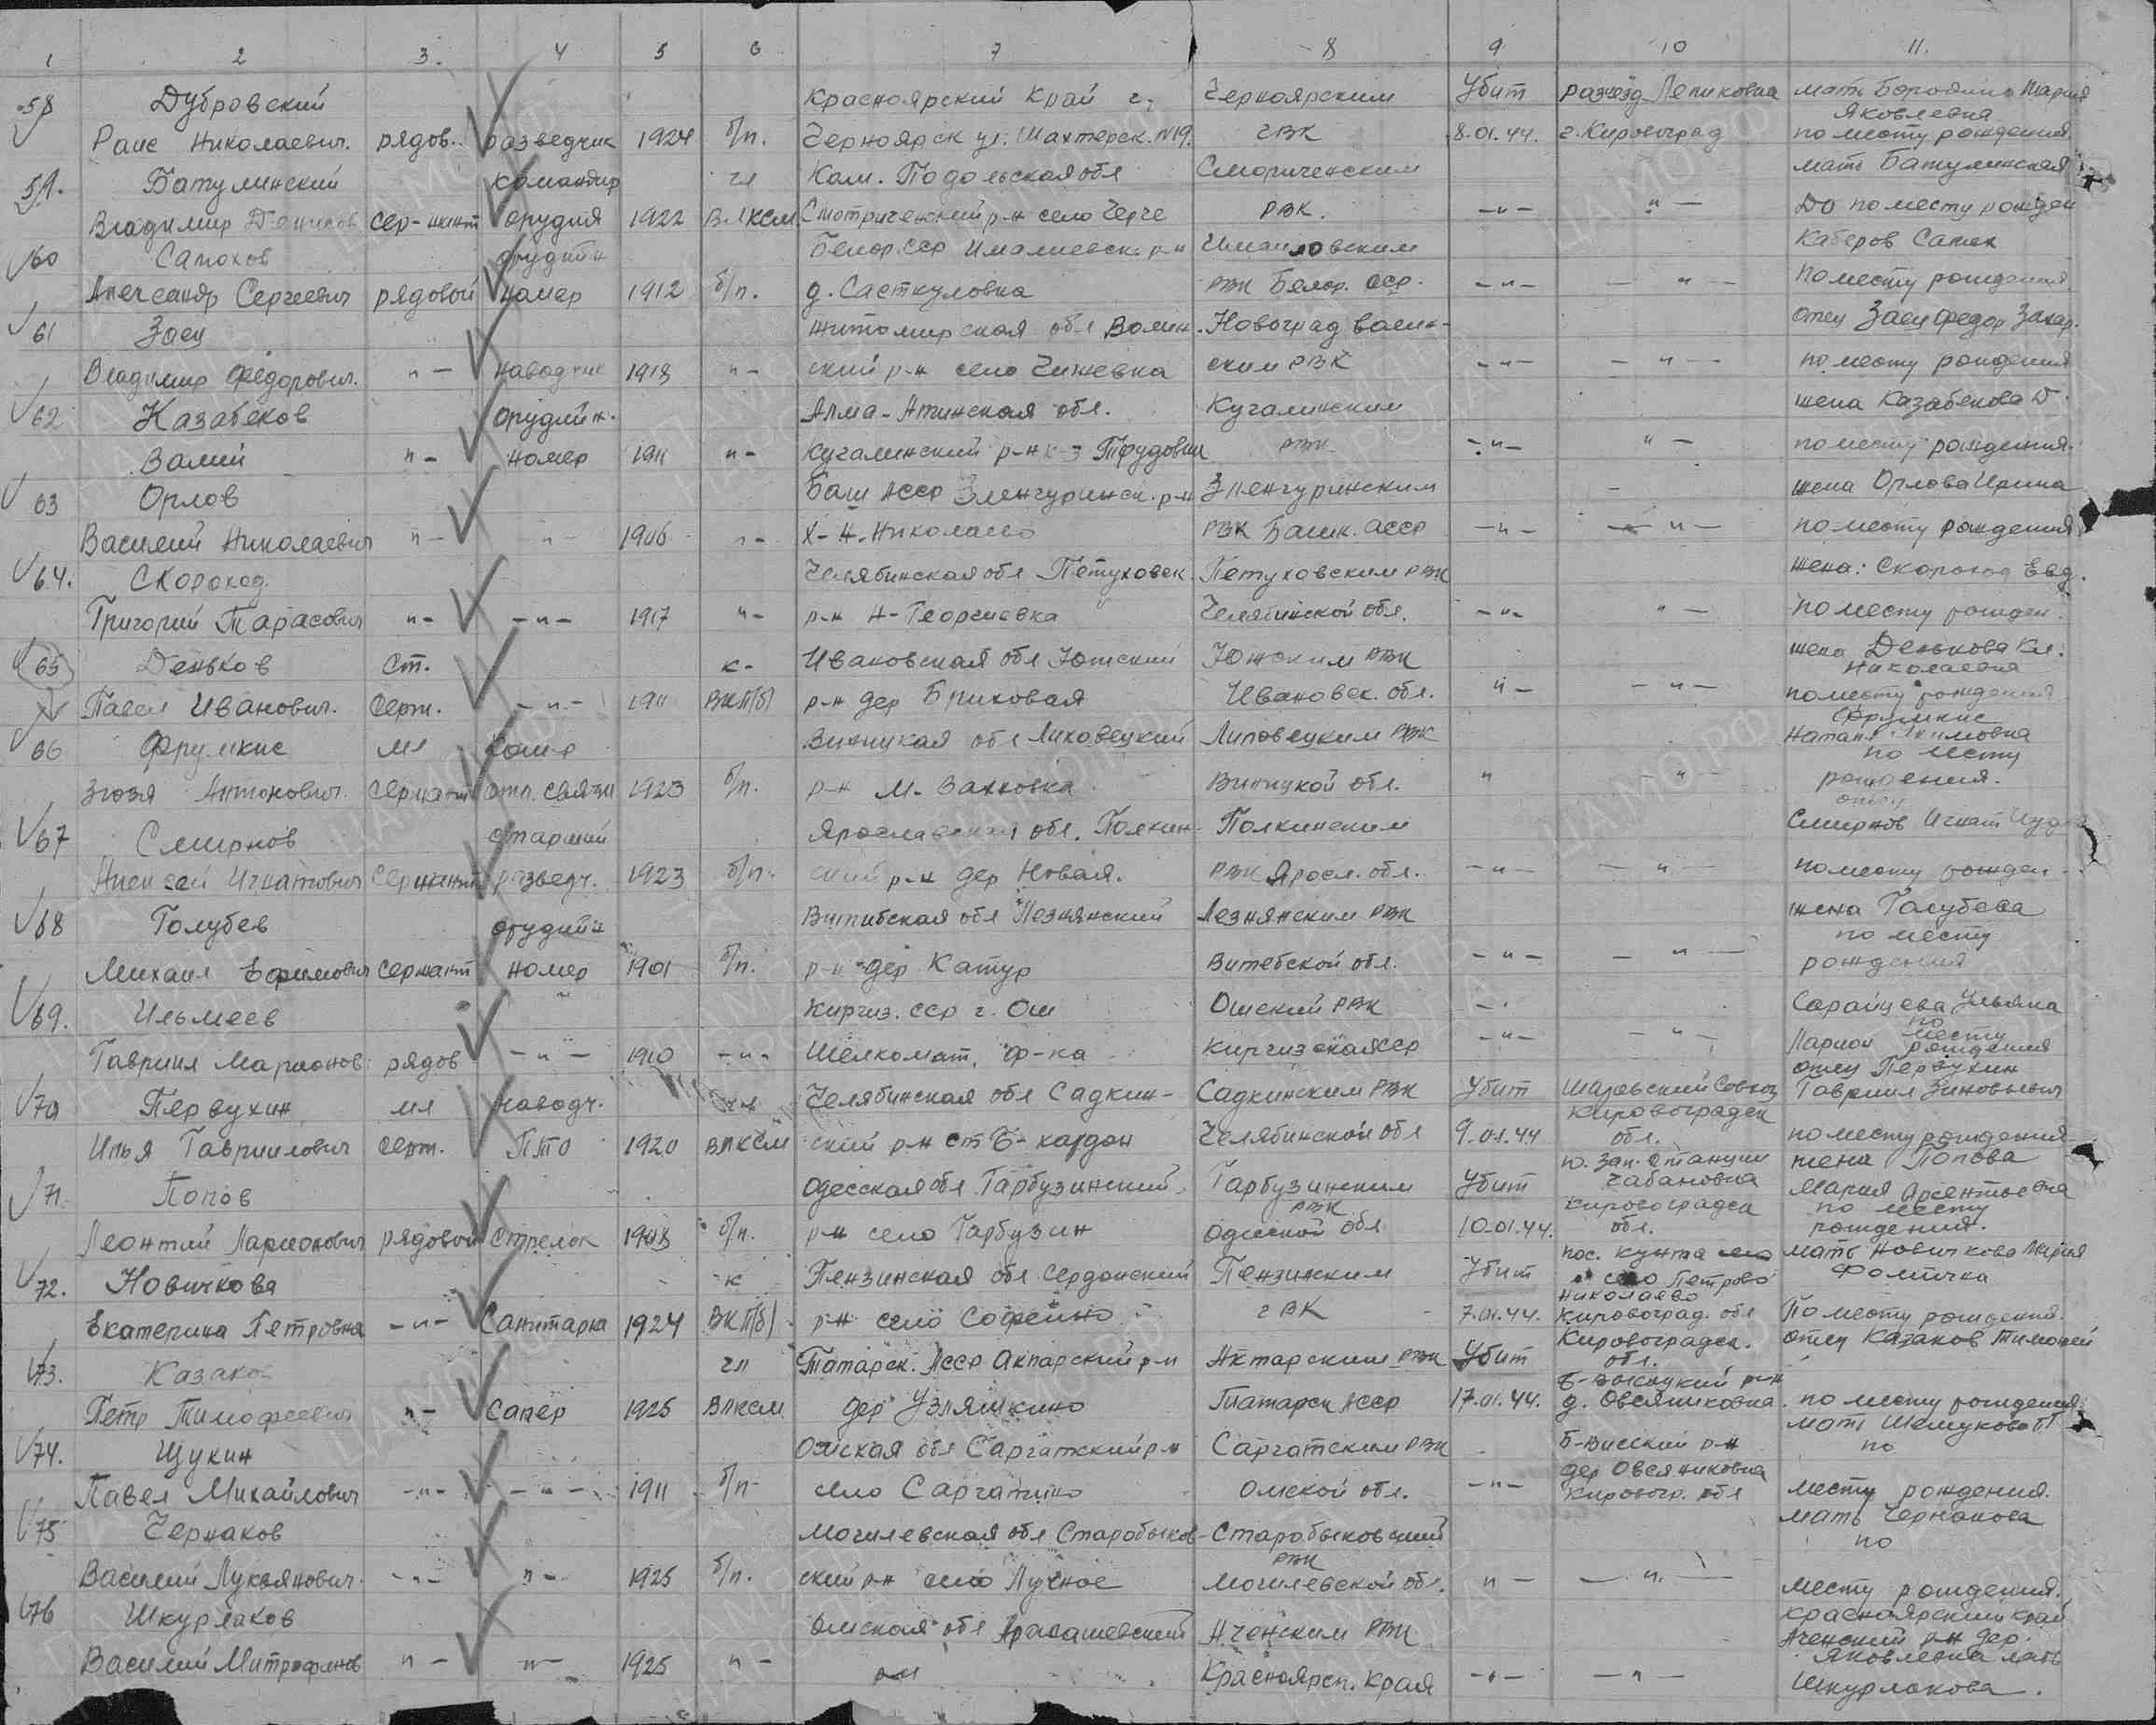 1 2 3. 4 5 6 7 8 9 10 11.
58 Дубровский Красноярский край г. Черноярским Убит разъезд Лелековка мать Бородина Мария Яковлевна
Раис Николаевич. рядов. разведчик 1924 б/п. Черноярск ул. Шахтерск. N19. ГВК 8.01.44. г. Кировоград по месту рождения.
59. Батулинский командир чл Кам. Подольская обл Смотриченским мать Батулинская
Владимир Денисов сер-жант орудия 1922 ВЛКСМ Смотриченский р-н село Черче РВК. -"- " - До по месту рожден
60 Сапохов орудийн Белор. ССР р-н Каберов Сапек
Александр Сергеевич рядовой номер 1912 б/п. д. Састкуловка РВК Белор. ССР. -"- - " - По месту рождения
61 Заец Житомирская обл Волын- Новоград волын- отец Заец Федор Захар.
Владимир Федорович. "- наводчик 1918 "- ский р-н село Чижевка ским РВК -"- - " - по месту рождения
62 Казабеков орудийн. Алма-Атинская обл. Кугалинским жена Казабекова Д.
Валий "- номер 1911 "- Кугалинский р-н к-з Трудовик РВК -"- " - по месту рождения.
63 Орлов Баш АССР Зленчуринск. р-н Зленчуринским жена Орлова Ирина
Василий Николаевич "- "- 1906 "- х-Н. Николаево РВК Башк. АССР -"- - " - по месту рождения
64. Скороход Челябинская обл Петуховск. Петуховским РВК жена: Скороход Евд.
Григорий Тарасович "- -"- 1917 "- р-н Н-Георгиевка Челябинской обл. -"- " - по месту рожден.
65 Деньков Ст. к- Ивановская обл Южский Южским РВК жена Денькова Кл. Николаевна
Павел Иванович. серж. -"- 1911 ВКП(б) р-н дер Бриковая Ивановск. обл. "- - " - по месту рождения
66 Фрумкис мл Ком-р Винницкая обл Липовецкий Липовецким РВК Фрумкис
Зюзя Антонович. сержант отд. связи 1923 б/п. р-н м. Вахновка Винницкой обл. " - " - по месту рождения.
67 Смирнов старший Ярославская обл. Полкин- Полкинским отец Смирнов Игнат
Алексей Игнатович сержант разведч. 1923 б/п. ский р-н дер Новая. РВК Яросл. обл. -"- - " - по месту рожден.
68 Голубев орудийн Витибская обл Лезнянский Лезнянским РВК жена Голубева
Михаил Ефимович сержант номер 1901 б/п. р-н дер Катур Витебской обл. -"- - " - по месту рождения
69. Ильмеев Киргиз. ССР г. Ош Ошский РВК Сарайцева Ульяна
Гавриил Марионов. рядов -"- 1910 -"- Шелкомат. ф-ка Киргизская ССР -"- - " - Ларион по месту рождения
70 Первухин мл наводч. чл Челябинская обл Садкин- Садкинским РВК Убит Шаревский Совхоз отец Первухин Гавриил Зиновьевич
Илья Гавриилович серж. ПТО 1920 ВЛКСМ ский р-н ст Б-кардон Челябинской обл 9.01.44 Кировоградск обл. по месту рождения
71. Попов Одесская обл Гарбузинский Гарбузинским РВК Убит ю. зап. станции Чабановка жена Попова Мария Арсентьевна
Леонтий Ларионович рядовой стрелок 1908 б/п. р-н село Гарбузин Одесской обл 10.01.44. Кировоградск обл. по месту рождения.
72. Новичкова к Пензинская обл Сердонский Пензинским Убит пос. Кунта село Петрово мать Новичкова Мария Фомична
Екатерина Петровна -"- Санитарка 1924 ВКП(б) р-н село Софеино ГВК 7.01.44. Николаево Кировоград. обл По месту рождения.
73. Казаков чл Татарск. АССР Актарский р-н Актарским РВК Убит Кировоградск. обл. отец Казаков Тимофей
Петр Тимофеевич "- Сапер 1925 ВЛКСМ дер Узляшкино Татарск АССР 17.01.44. Б-Высоцкий р-н д. Овсяниковка по месту рождения
74. Щукин Омская обл Саргатский р-н Саргатским РВК Б-Висский р-н мать Шемукова П
Павел Михайлович -"- -"- 1911 б/п- село Саргатино Омской обл. -"- дер Овсяниковка Кировогр. обл по месту рождения.
75 Чернаков Могилевская обл Старобыхов- Старобыховский РВК мать Чернакова
Василий Лукьянович. -"- "- 1925 б/п. ский р-н село Лучное Могилевской обл. "- - " - по месту рождения.
76 Шкурлаков Омская обл Аралашевский Аченским РВК Красноярский край Аченский р-н дер.
Василий Митрофанов "- "- 1925 "- р-н Красноярск. Края -"- - " - Яковлевка мать Шкурлакова.